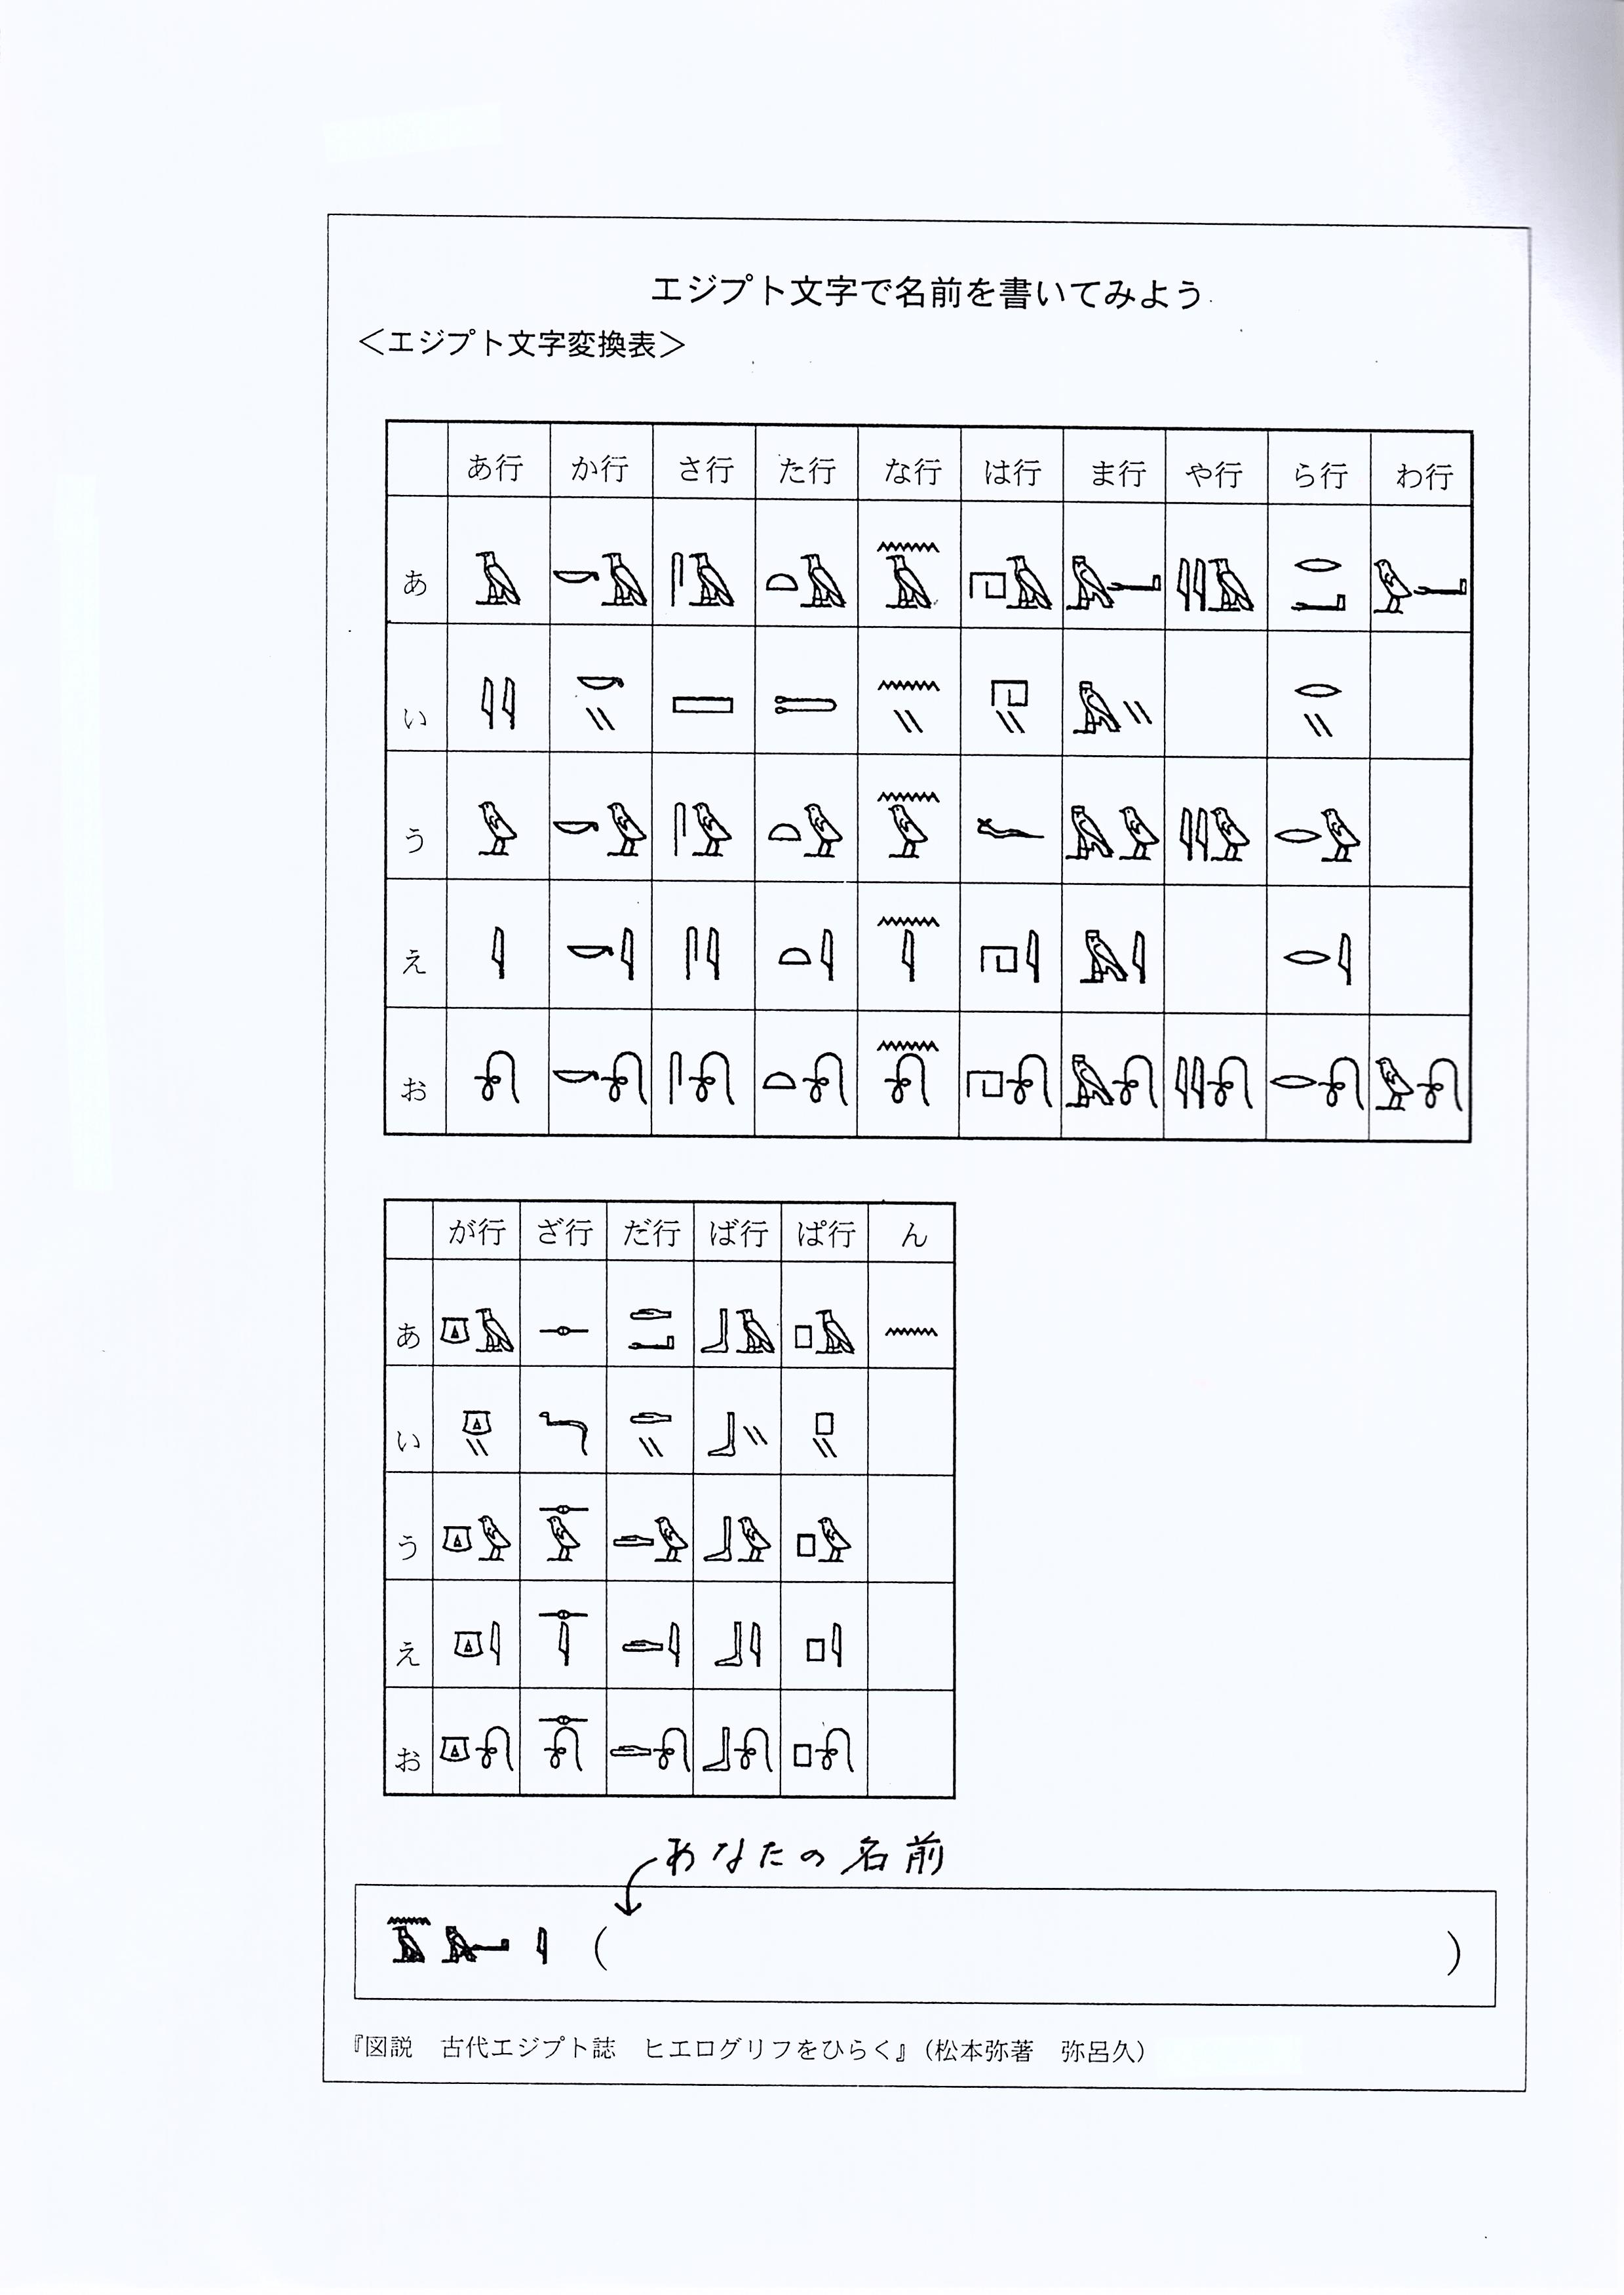 エジプト文字で名前を書いてみよう
＜エジプト文字変換表＞
あ行 か行 さ行 た行 な行 は行 ま行 や行 ら行 わ行
あ
い
う
え
お
が行 ざ行 だ行 ば行 ぱ行 ん
あ
い
う
え
お
あなたの名前
( )
『図説 古代エジプト誌 ヒエログリフをひらく』（松本弥著 弥呂久）